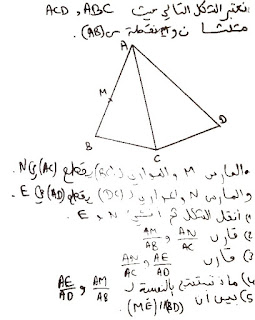 نعتبر الشكل التالي حيث ABC و ACD
مثلثان و M نقطة من (AB).
A
M
B
C
D
المار من M والموازي لـ (BC) يقطع (AC) في N.
والمار من N والموازي لـ (DC) يقطع (AD) في E.
1) أنقل الشكل ثم أنشئ N و E
2) قارن AN/AC و AM/AB
3) قارن AE/AD و AN/AC
4) ماذا تستنتج بالنسبة لـ AM/AB و AE/AD
5) بين أن (ME)//(BD)